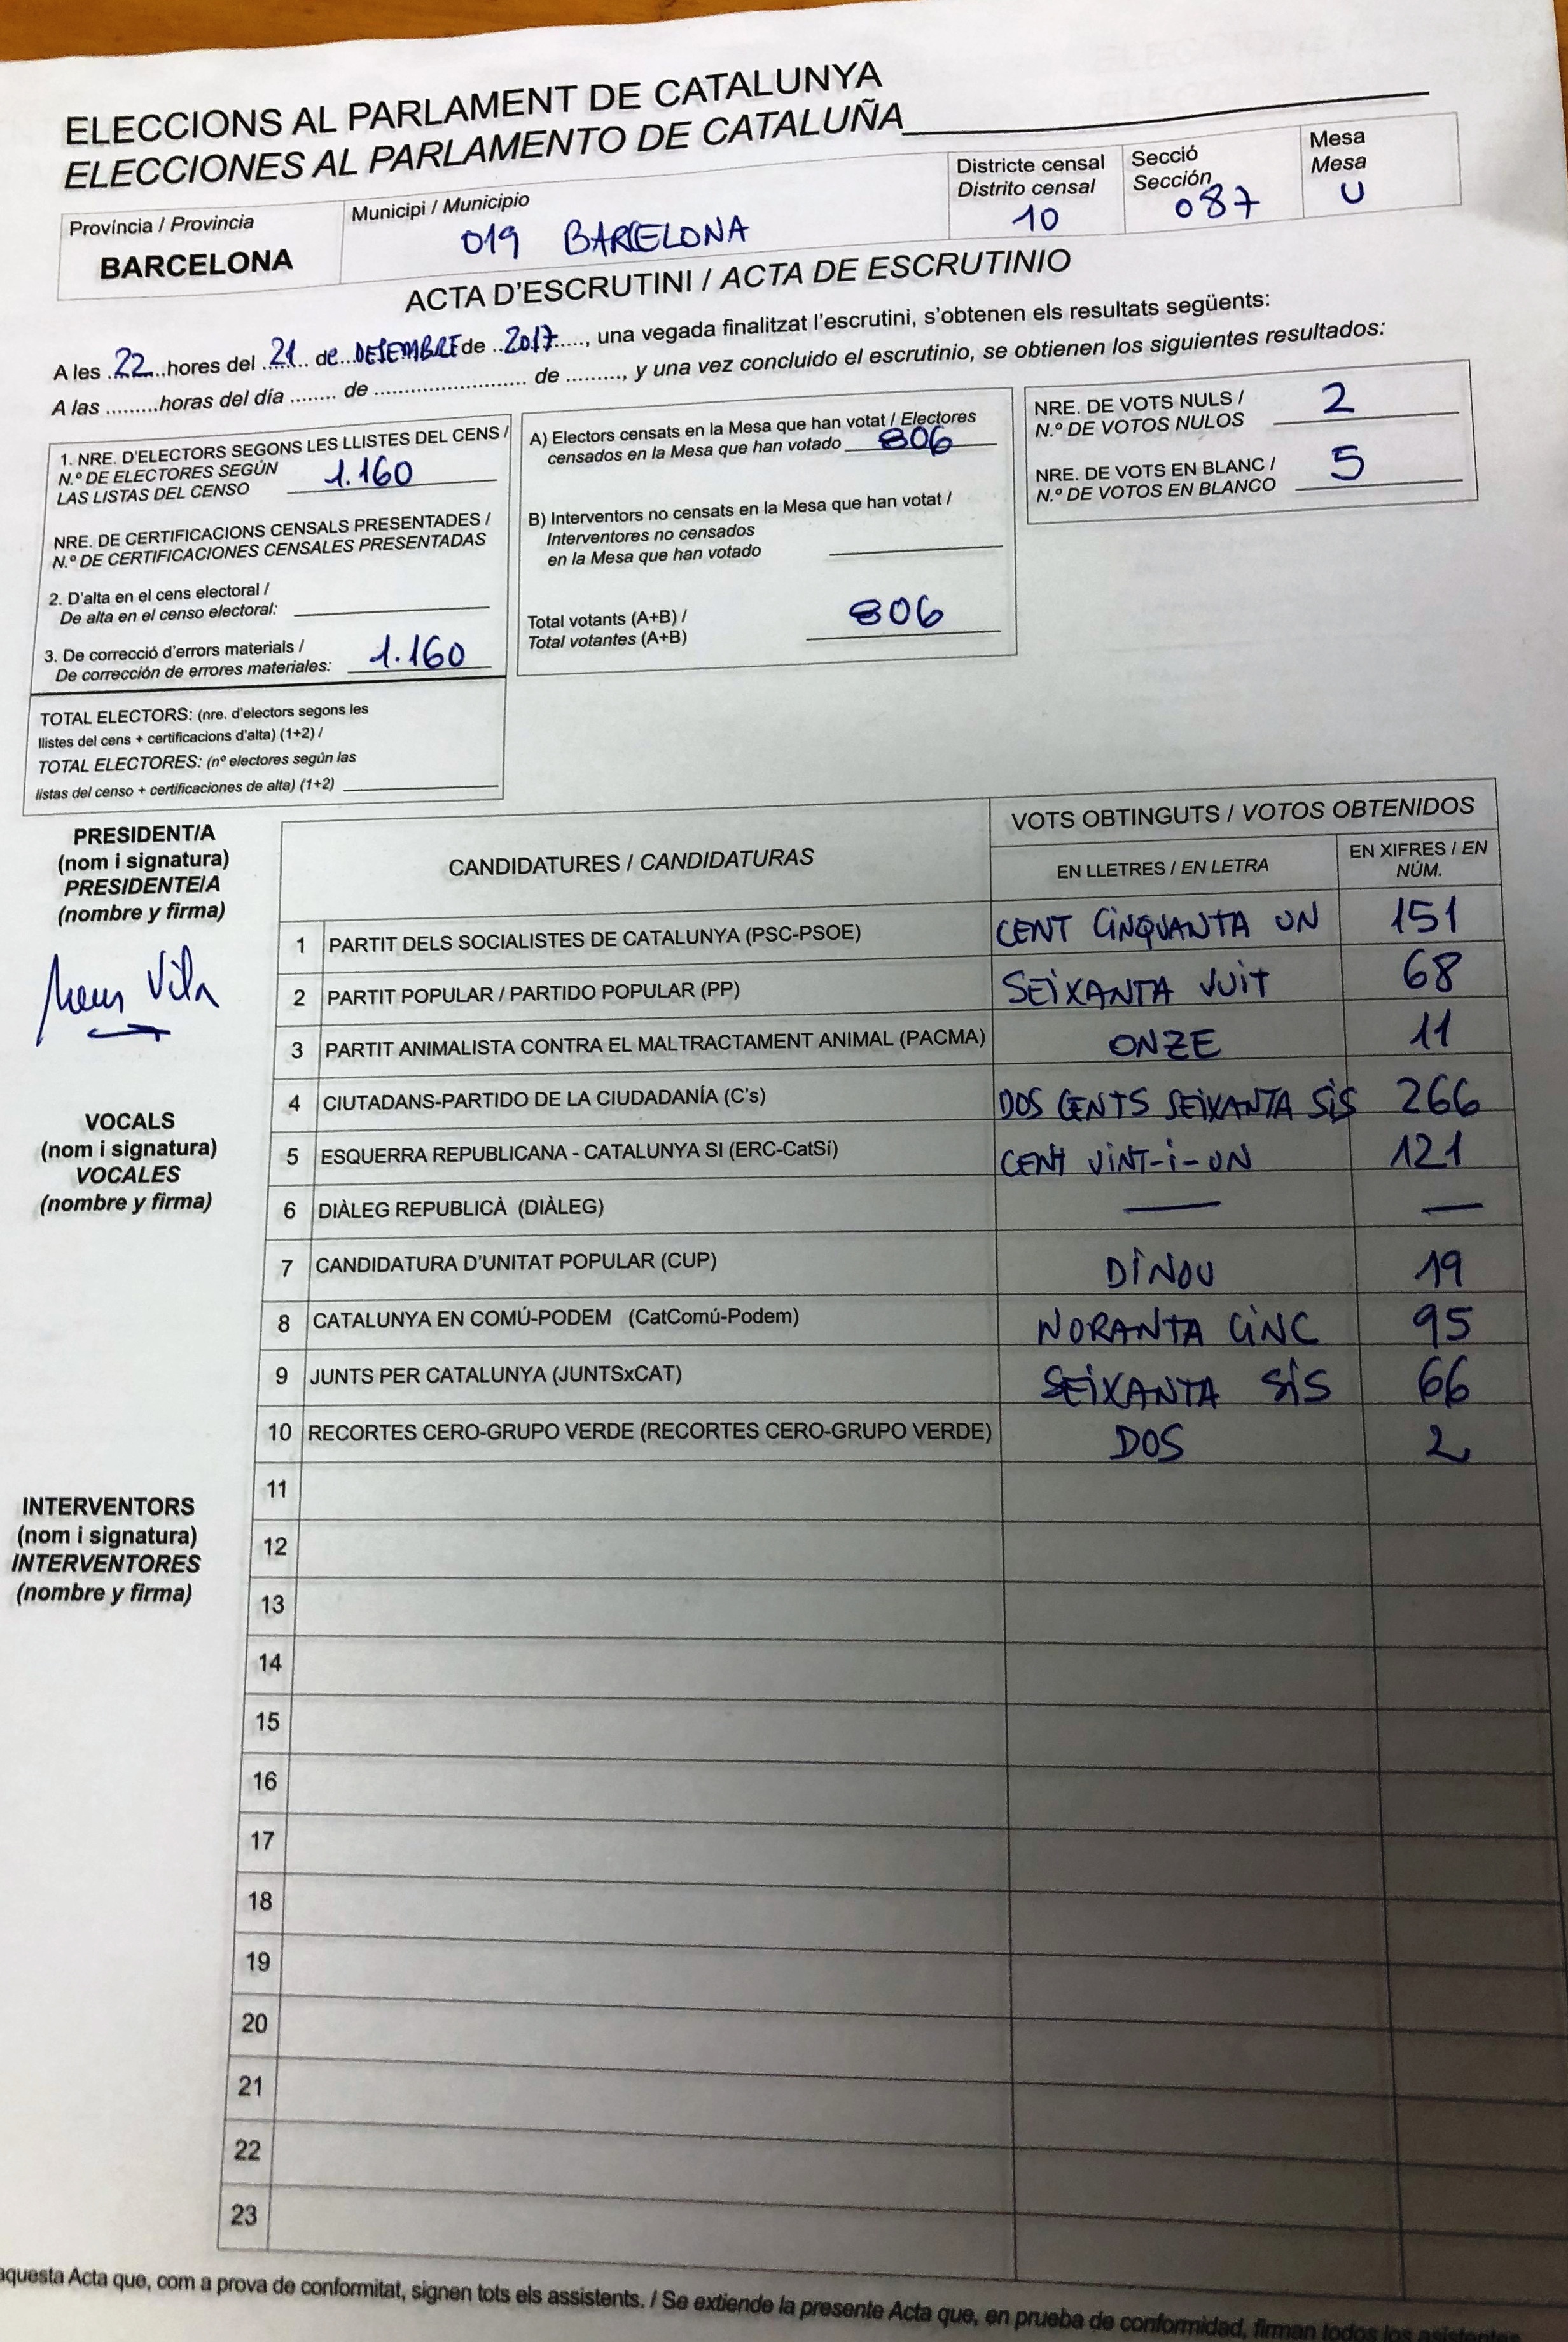 ELECCIONS AL PARLAMENT DE CATALUNYA
ELECCIONES AL PARLAMENTO DE CATALUÑA
Província / Provincia
BARCELONA
Municipi / Municipio
019 BARCELONA
Districte censal
Distrito censal
10
Secció
Sección
087
Mesa
Mesa
U
ACTA D'ESCRUTINI / ACTA DE ESCRUTINIO
A les 22 hores del 21 de DESEMBRE de 2017, una vegada finalitzat l'escrutini, s'obtenen els resultats següents:
A las ........horas del día ........ de ........................ de ........, y una vez concluido el escrutinio, se obtienen los siguientes resultados:
1. NRE. D'ELECTORS SEGONS LES LLISTES DEL CENS /
N.º DE ELECTORES SEGÚN
LAS LISTAS DEL CENSO 1.160
NRE. DE CERTIFICACIONS CENSALS PRESENTADES /
N.º DE CERTIFICACIONES CENSALES PRESENTADAS
2. D'alta en el cens electoral /
De alta en el censo electoral:
3. De correcció d'errors materials /
De corrección de errores materiales: 1.160
TOTAL ELECTORS: (nre. d'electors segons les
llistes del cens + certificacions d'alta) (1+2) /
TOTAL ELECTORES: (nº electores según las
listas del censo + certificaciones de alta) (1+2)
A) Electors censats en la Mesa que han votat / Electores
censados en la Mesa que han votado 806
B) Interventors no censats en la Mesa que han votat /
Interventores no censados
en la Mesa que han votado
Total votants (A+B) /
Total votantes (A+B) 806
NRE. DE VOTS NULS /
N.º DE VOTOS NULOS 2
NRE. DE VOTS EN BLANC /
N.º DE VOTOS EN BLANCO 5
PRESIDENT/A
(nom i signatura)
PRESIDENTE/A
(nombre y firma)
Vila
VOCALS
(nom i signatura)
VOCALES
(nombre y firma)
INTERVENTORS
(nom i signatura)
INTERVENTORES
(nombre y firma)
CANDIDATURES / CANDIDATURAS
VOTS OBTINGUTS / VOTOS OBTENIDOS
EN LLETRES / EN LETRA
EN XIFRES / EN NÚM.
1 PARTIT DELS SOCIALISTES DE CATALUNYA (PSC-PSOE) CENT CINQUANTA UN 151
2 PARTIT POPULAR / PARTIDO POPULAR (PP) SEIXANTA VUIT 68
3 PARTIT ANIMALISTA CONTRA EL MALTRACTAMENT ANIMAL (PACMA) ONZE 11
4 CIUTADANS-PARTIDO DE LA CIUDADANÍA (C's) DOS CENTS SEIXANTA SIS 266
5 ESQUERRA REPUBLICANA - CATALUNYA SI (ERC-CatSí) CENT VINT-I-UN 121
6 DIÀLEG REPUBLICÀ (DIÀLEG) — —
7 CANDIDATURA D'UNITAT POPULAR (CUP) DINOU 19
8 CATALUNYA EN COMÚ-PODEM (CatComú-Podem) NORANTA CINC 95
9 JUNTS PER CATALUNYA (JUNTSxCAT) SEIXANTA SIS 66
10 RECORTES CERO-GRUPO VERDE (RECORTES CERO-GRUPO VERDE) DOS 2
11
12
13
14
15
16
17
18
19
20
21
22
23
aquesta Acta que, com a prova de conformitat, signen tots els assistents. / Se extiende la presente Acta que, en prueba de conformidad, firman todos los asistentes